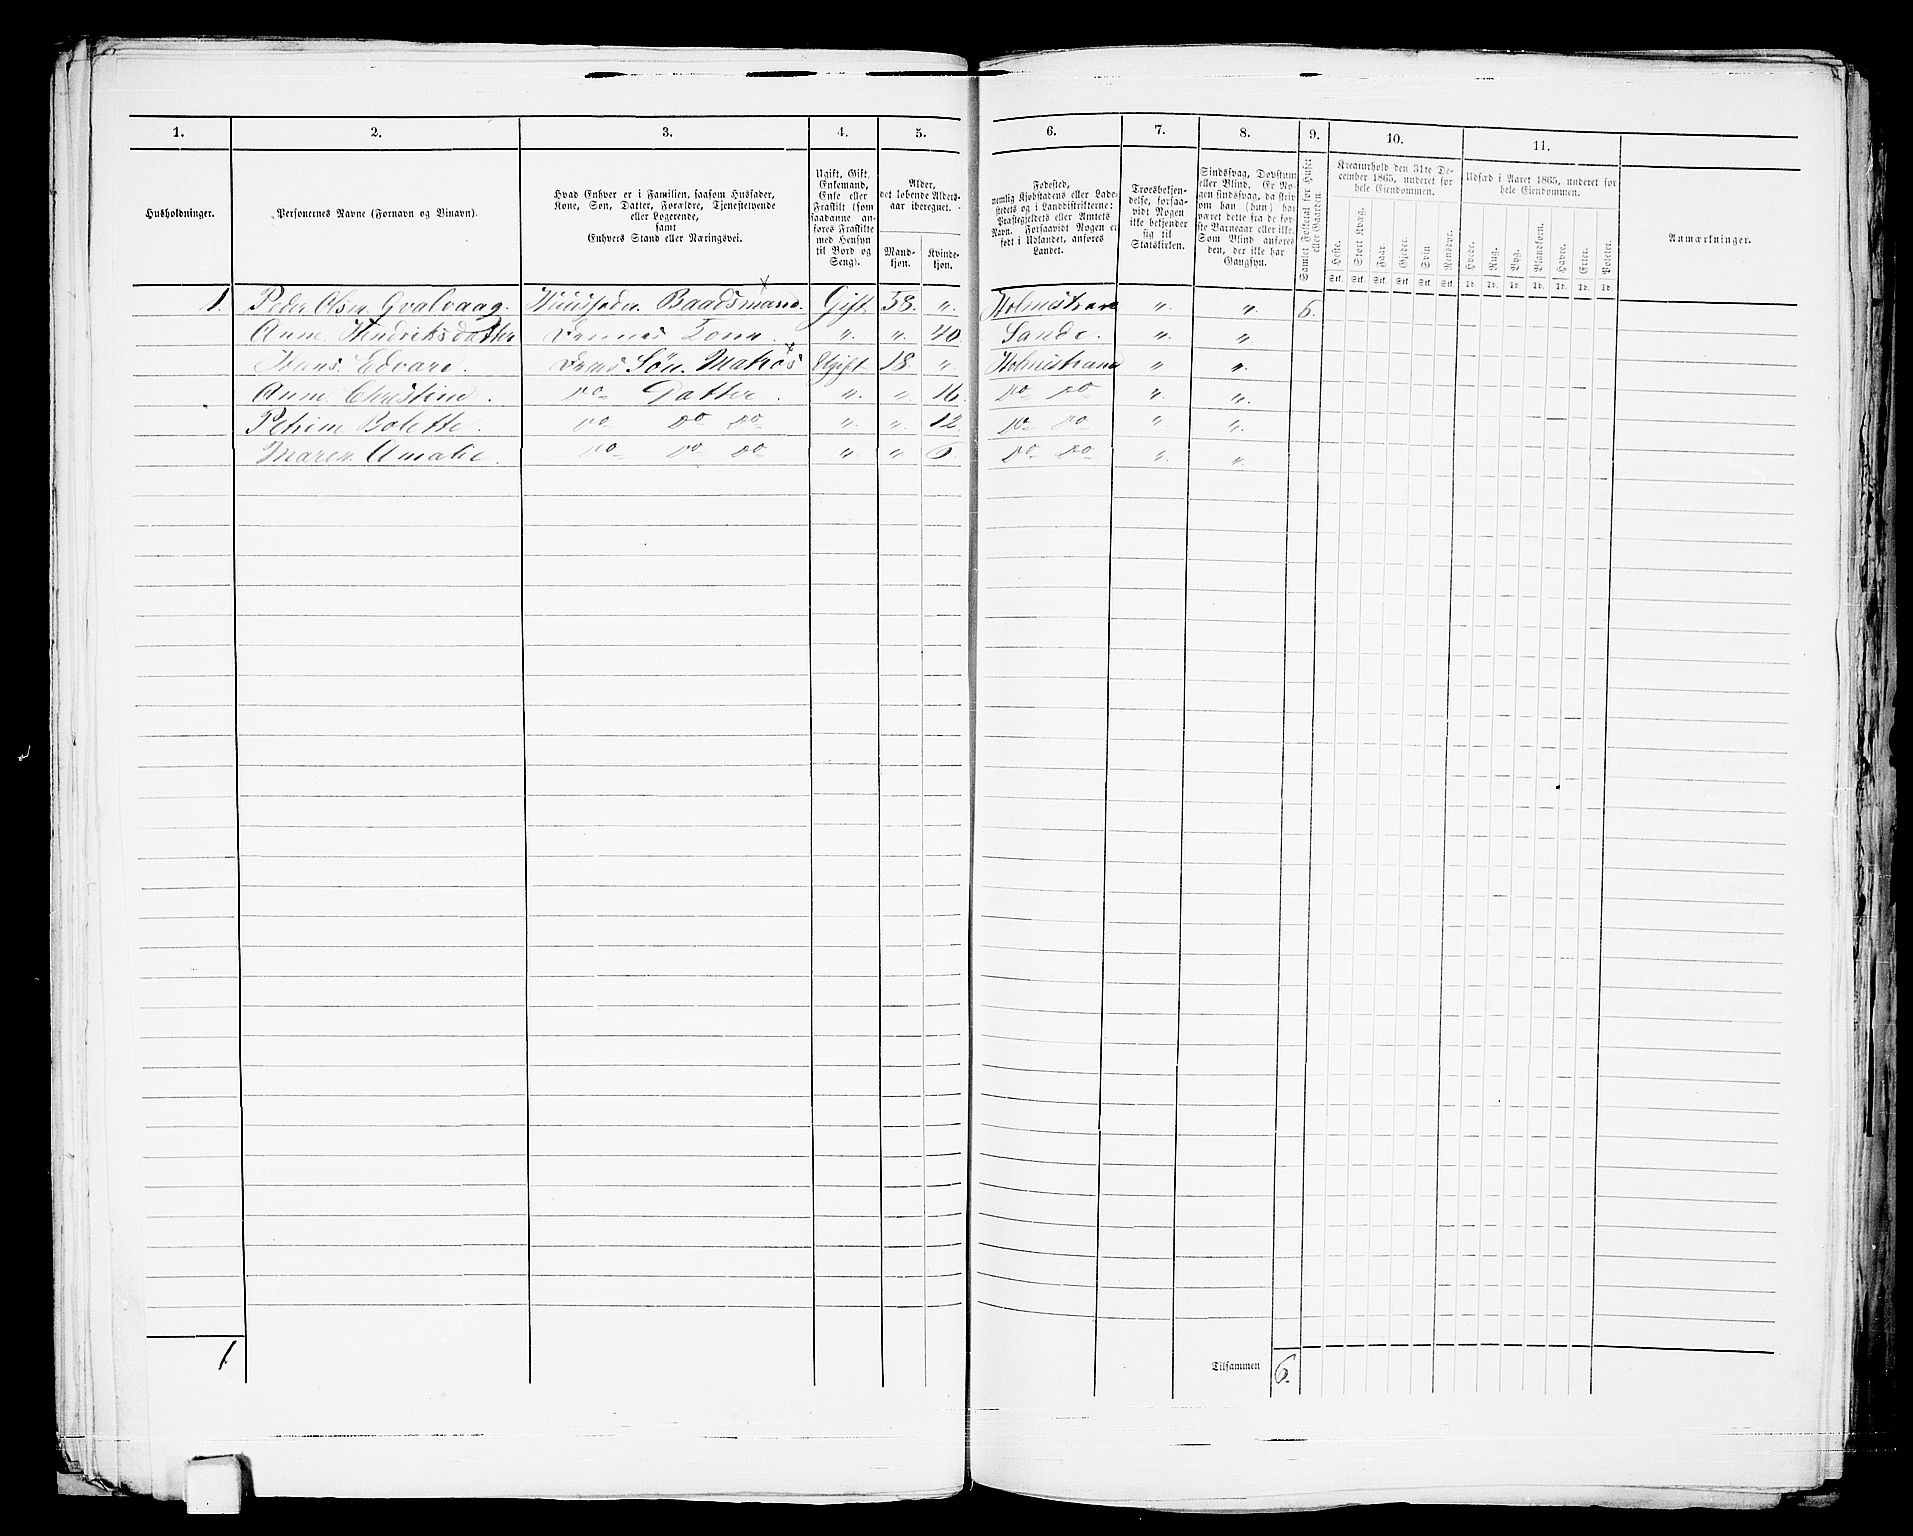 1. 2. 3. 4. 5. 6. 7. 8. 9. 10. 11.
Husholdninger.
Personernes Navne (Fornavn og Vinavn).
Hvad Enhver er i Familien, saasom Husfader,
Kone, Søn, Datter, Forældre, Tjenestetyende
eller Logerende,
samt
Enhvers Stand eller Næringsvei.
Ugift, Gift,
Enkemand,
Enke eller
Fraskilt (som
saadanne an-
føres Fraskilte
med Hensyn
til Bord og
Seng).
Alder,
det løbende Alders-
aar iberegnet.
Mand-
kjøn.
Kvinde-
kjøn.
Fødested,
nemlig Kjøbstadens eller Lade-
stedets og i Landdistrikterne:
Præstegjeldets eller Amtets
Navn. Forsaavidt Nogen er
født i Udlandet, anføres
Landet.
Troesbekjen-
delse, forsaa-
vidt Nogen
ikke bekjender
sig til
Statskirken.
Sindssvag, Døvstum
eller Blind. Er No-
gen sindssvag, da skriv
om han (hun) har
været dette fra de før-
ste Barneaar eller ikke.
Som Blind anføres
den, der ikke har
Gangsyn.
Samlet Folketal for Huset
eller Gaarden.
Kreaturhold den 31te De-
cember 1865, underet for
hele Eiendommen.
Heste. Stort Kvæg. Faar. Gjeder. Svin Rensdyr.
Stk. Stk. Stk. Stk. Stk. Stk.
Udsæd i Aaret 1865, underet for
hele Eiendommen.
Hvede. Rug. Byg. Blandkorn. Havre. Erter. Poteter.
Td. Td. Td. Td. Td. Td. Td.
Anmærkninger.
1. Peder Olsen Gvalvaag. Huusfader. Baadsmand. Gift 58. „ Holmestrand „ „ 6.
Anne Hendriksdatter Dennes Kone. „ „ 40 Sande. „ „
Hans Edvard. Deres Søn. Matros Ugift 18 „ Holmestrand „ „
Anne Christine. do Datter. „ „ 16. do do „ „
Petrine Bolette. do do do „ „ 12. do do „ „
Maren Amalie. do do do „ „ 6. do do „ „
1
Tilsammen 6.